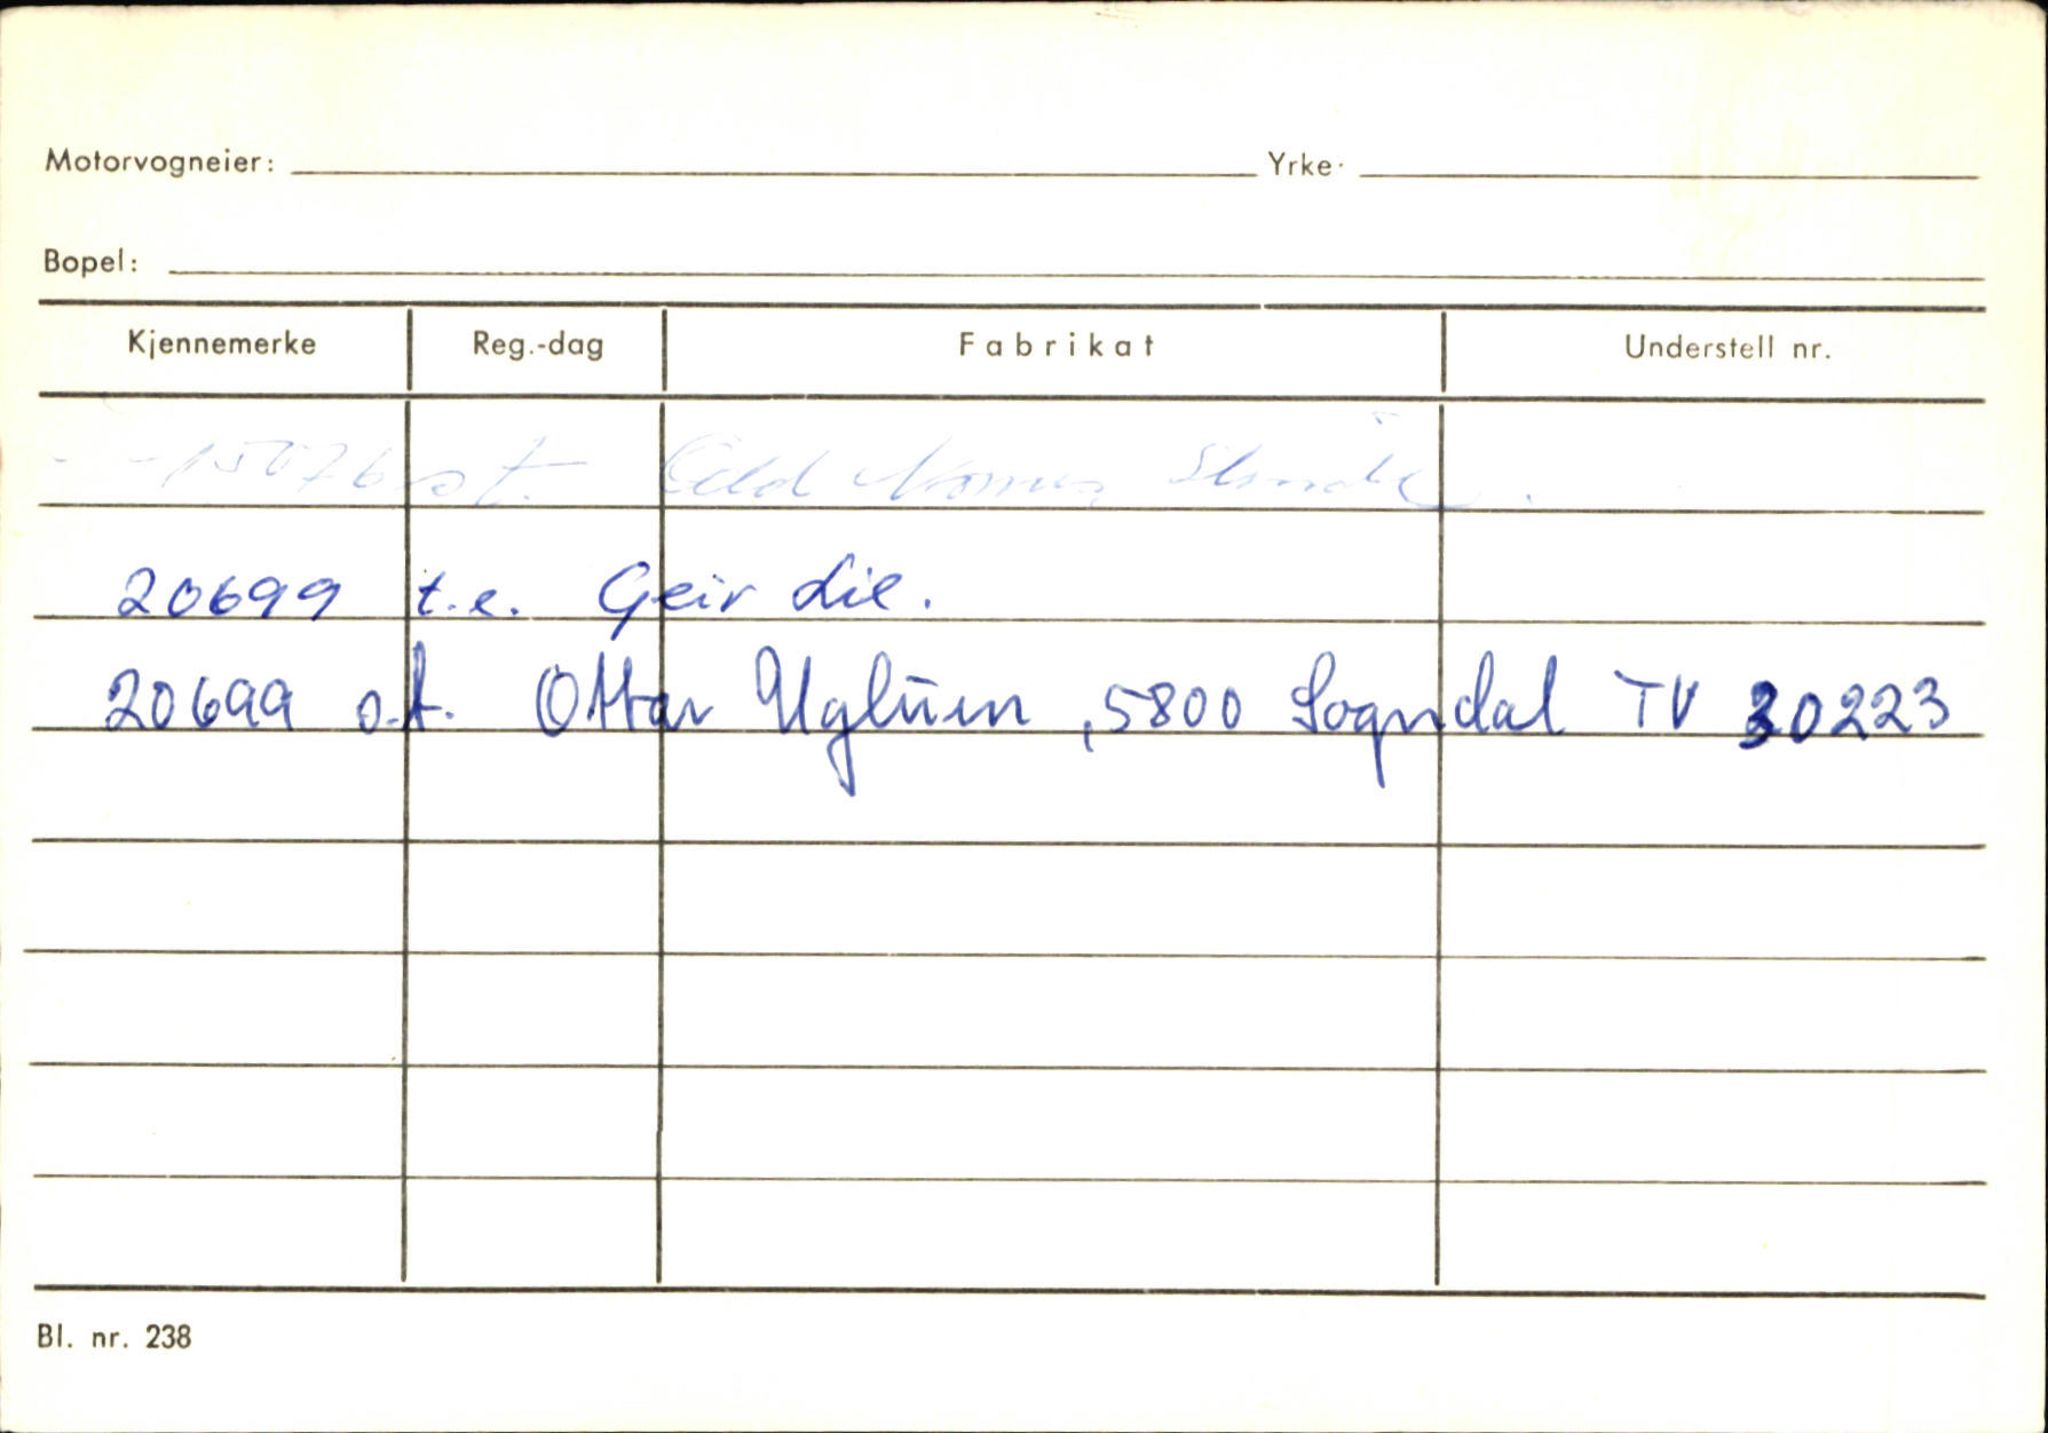 Motorvogneier: Yrke.
Bopel:
Kjennemerke Reg.-dag Fabrikat Understell nr.
15076 o.t.
20699 t.e. Geir Lie.
20699 o.t. Ottar Uglum, 5800 Sogndal TV 30223
Bl. nr. 238